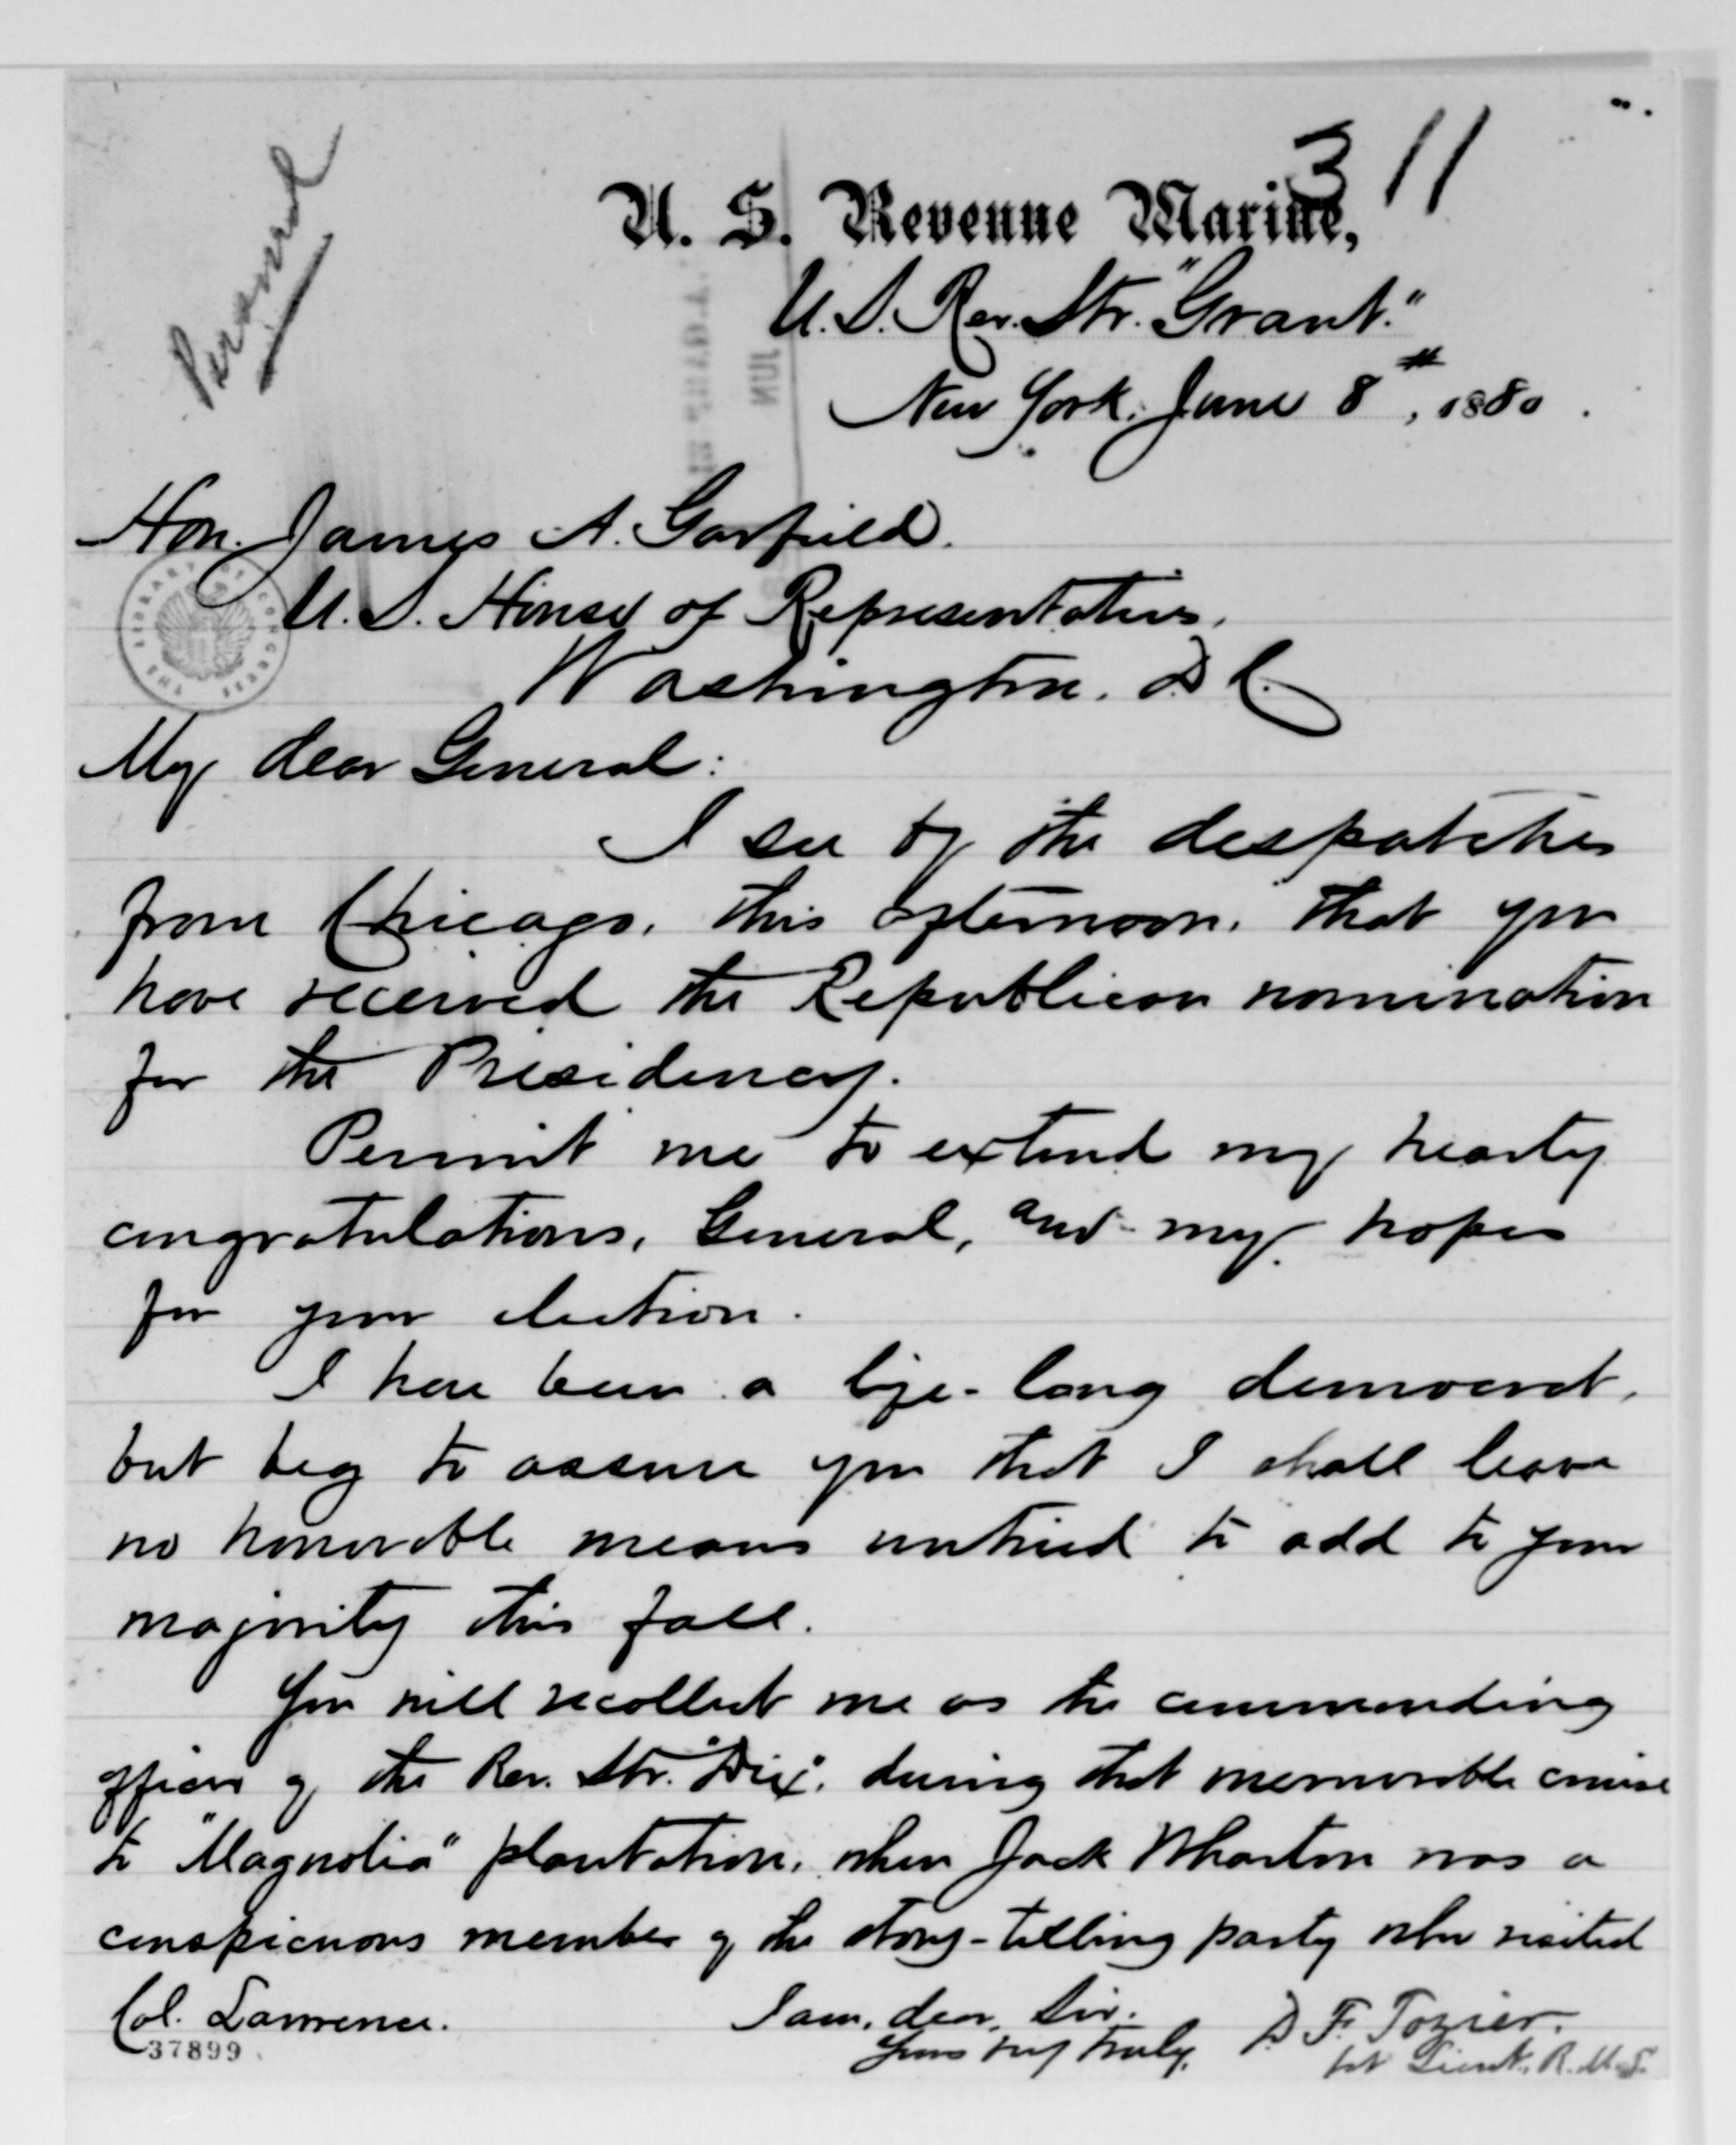 Personal
311
U. S. Revenue Marine,
U.S. Rev. Str. "Grant."
New York, June 8th, 1880.
Hon. James A. Garfield.
U.S. House of Representatives,
Washington, D.C.
THE LIBRARY OF CONGRESS
JUN
My dear General:
I see by the despatches
from Chicago, this afternoon, that you
have received the Republican nomination
for the Presidency.
Permit me to extend my hearty
congratulations, General, and my hopes
for your election.
I have been a life-long democrat,
but beg to assure you that I shall leave
no honorable means untried to add to your
majority this fall.
You will recollect me as the commanding
officer of the Rev. Str. "Dix", during that memorable cruise
to "Magnolia" plantation, when Jack Wharton was a
conspicuous member of the story-telling party who visited
Col. Lawrence.
I am, dear, Sir,
Yours very truly,
D. F. Tozier.
1st Lieut. R.M.S.
37899